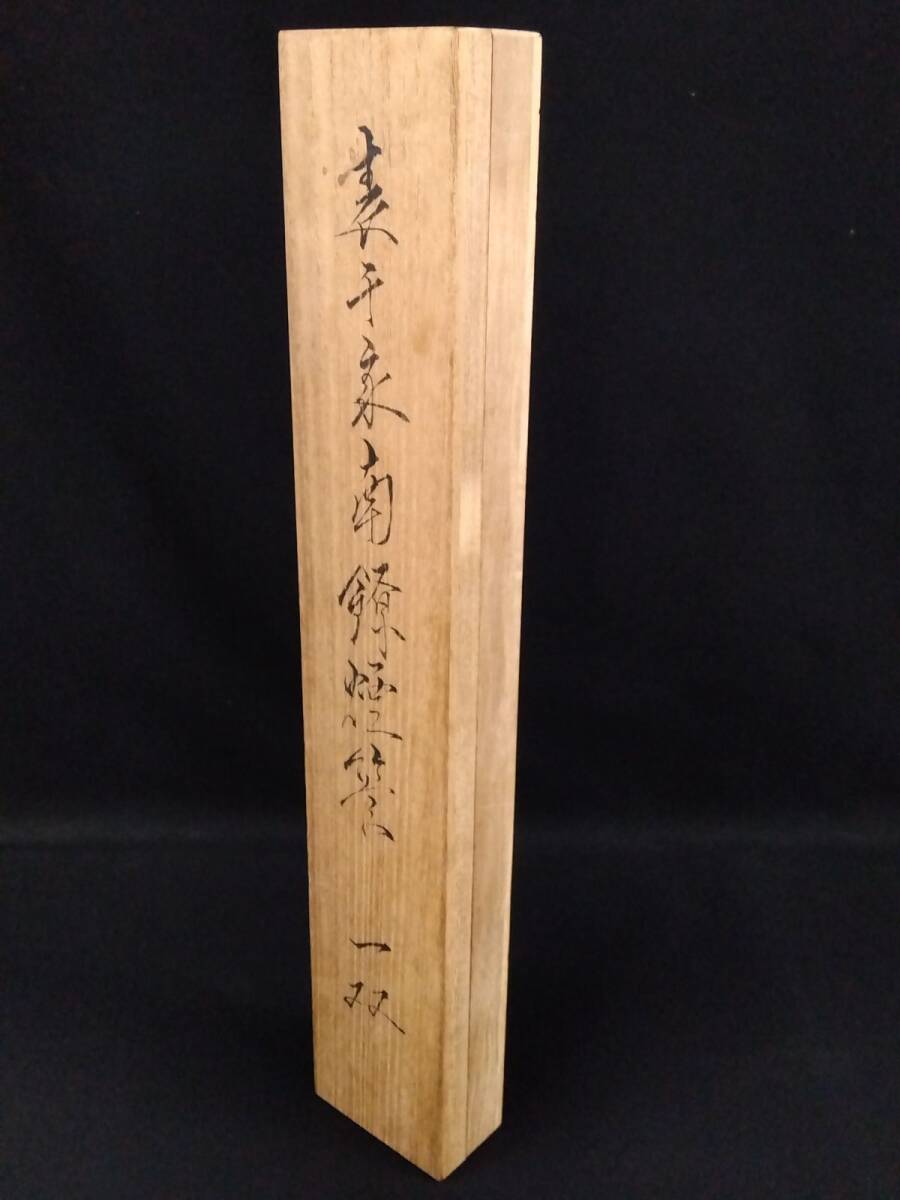 表千家南鐐煙管 一双